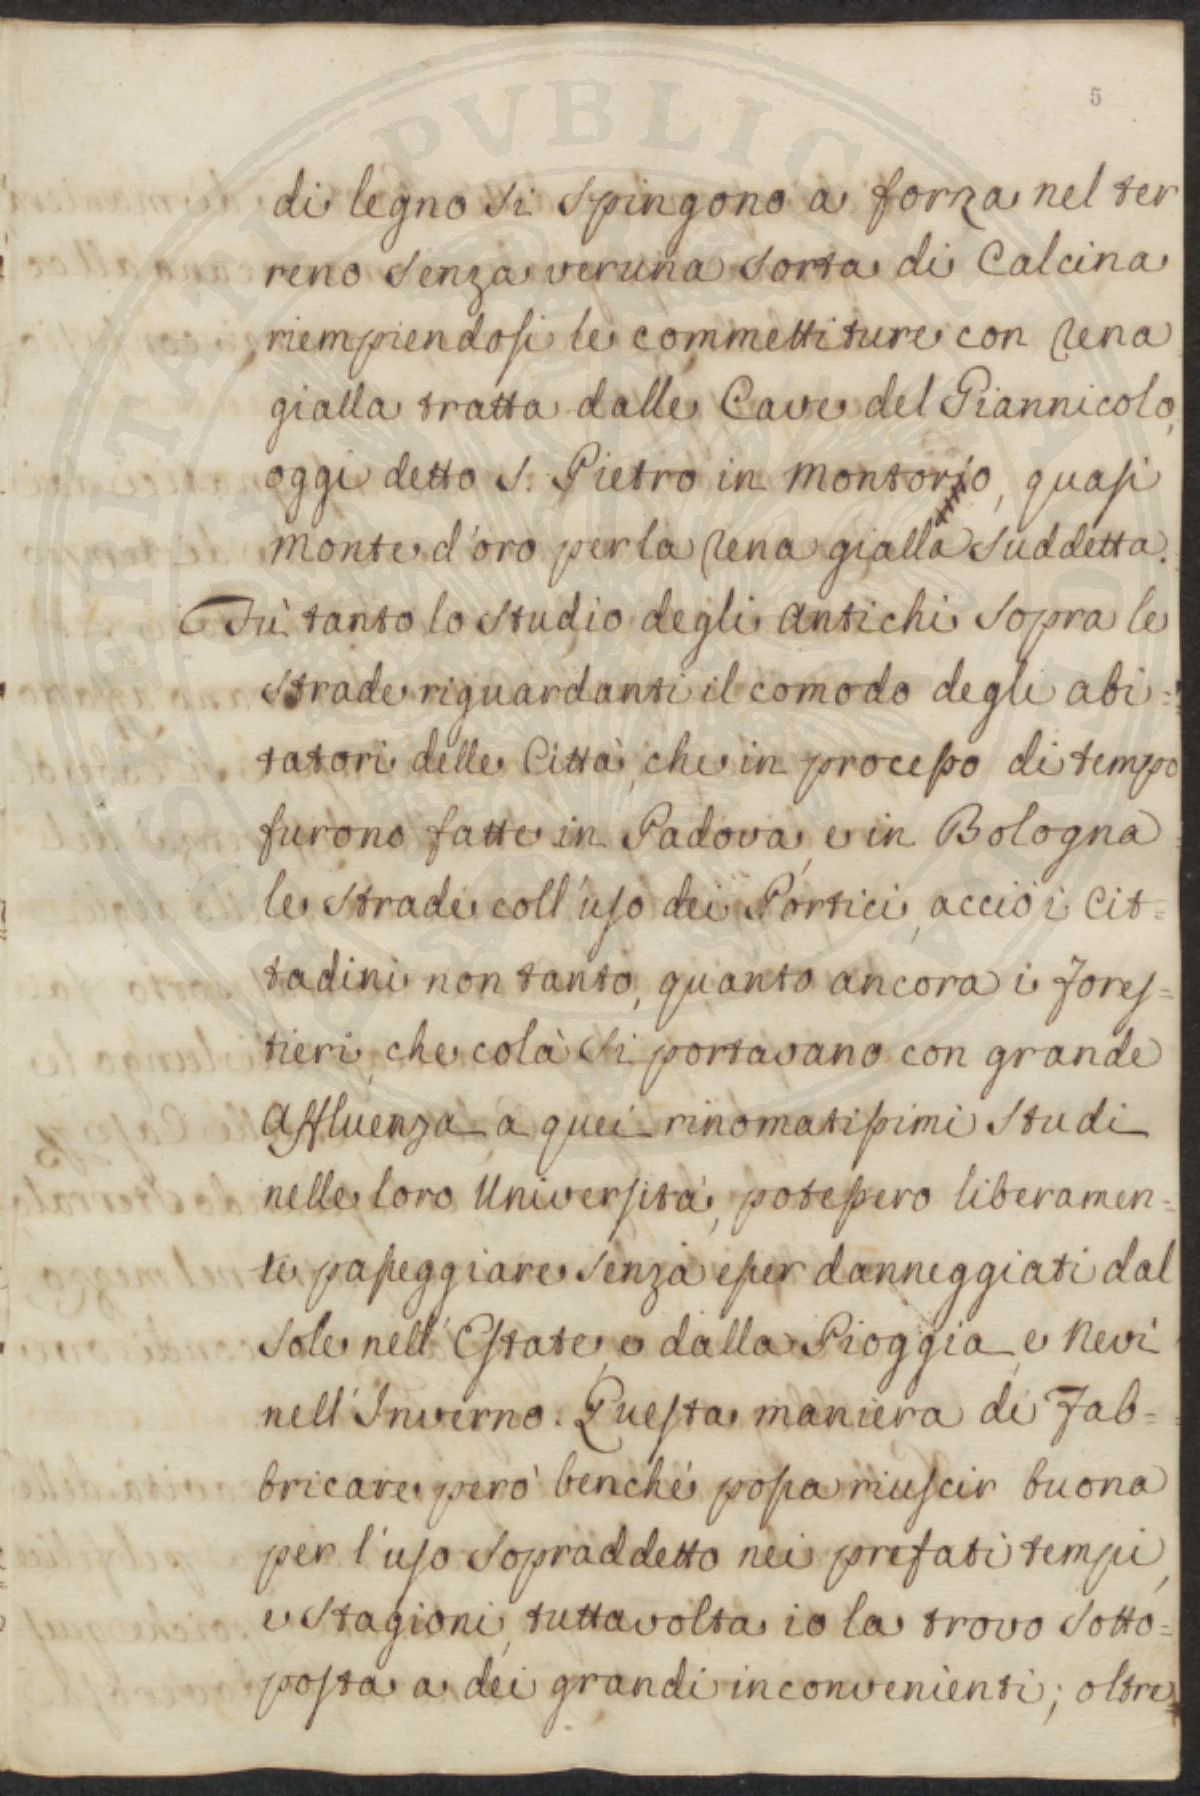 5
di legno si spingono a forza nel ter
reno senza veruna sorta di Calcina
riempiendosi le commettiture con rena
gialla tratta dalle Cave del Giannicolo,
oggi detto S. Pietro in Montorio, quasi
Monte d'oro per la rena gialla suddetta.
Fù tanto lo studio degli antichi sopra le
strade riguardanti il comodo degli abi=
tatori delle Città, che in processo di tempo
furono fatte in Padova, e in Bologna
le strade coll'uso dei Portici, acciò i Cit=
tadini non tanto, quanto ancora i Fores=
tieri, che colà si portavano con grande
Affluenza a quei rinomatissimi Studi
nelle loro Università, potessero liberamen=
te passeggiare senza esser danneggiati dal
sole nell'Estate, e dalla Pioggia, e Nevi
nell'Inverno. Questa maniera di Fab=
bricare però benché possa riuscir buona
per l'uso sopraddetto nei prefati tempi,
e stagioni, tuttavolta io la trovo sotto=
posta a dei grandi inconvenienti; oltre=